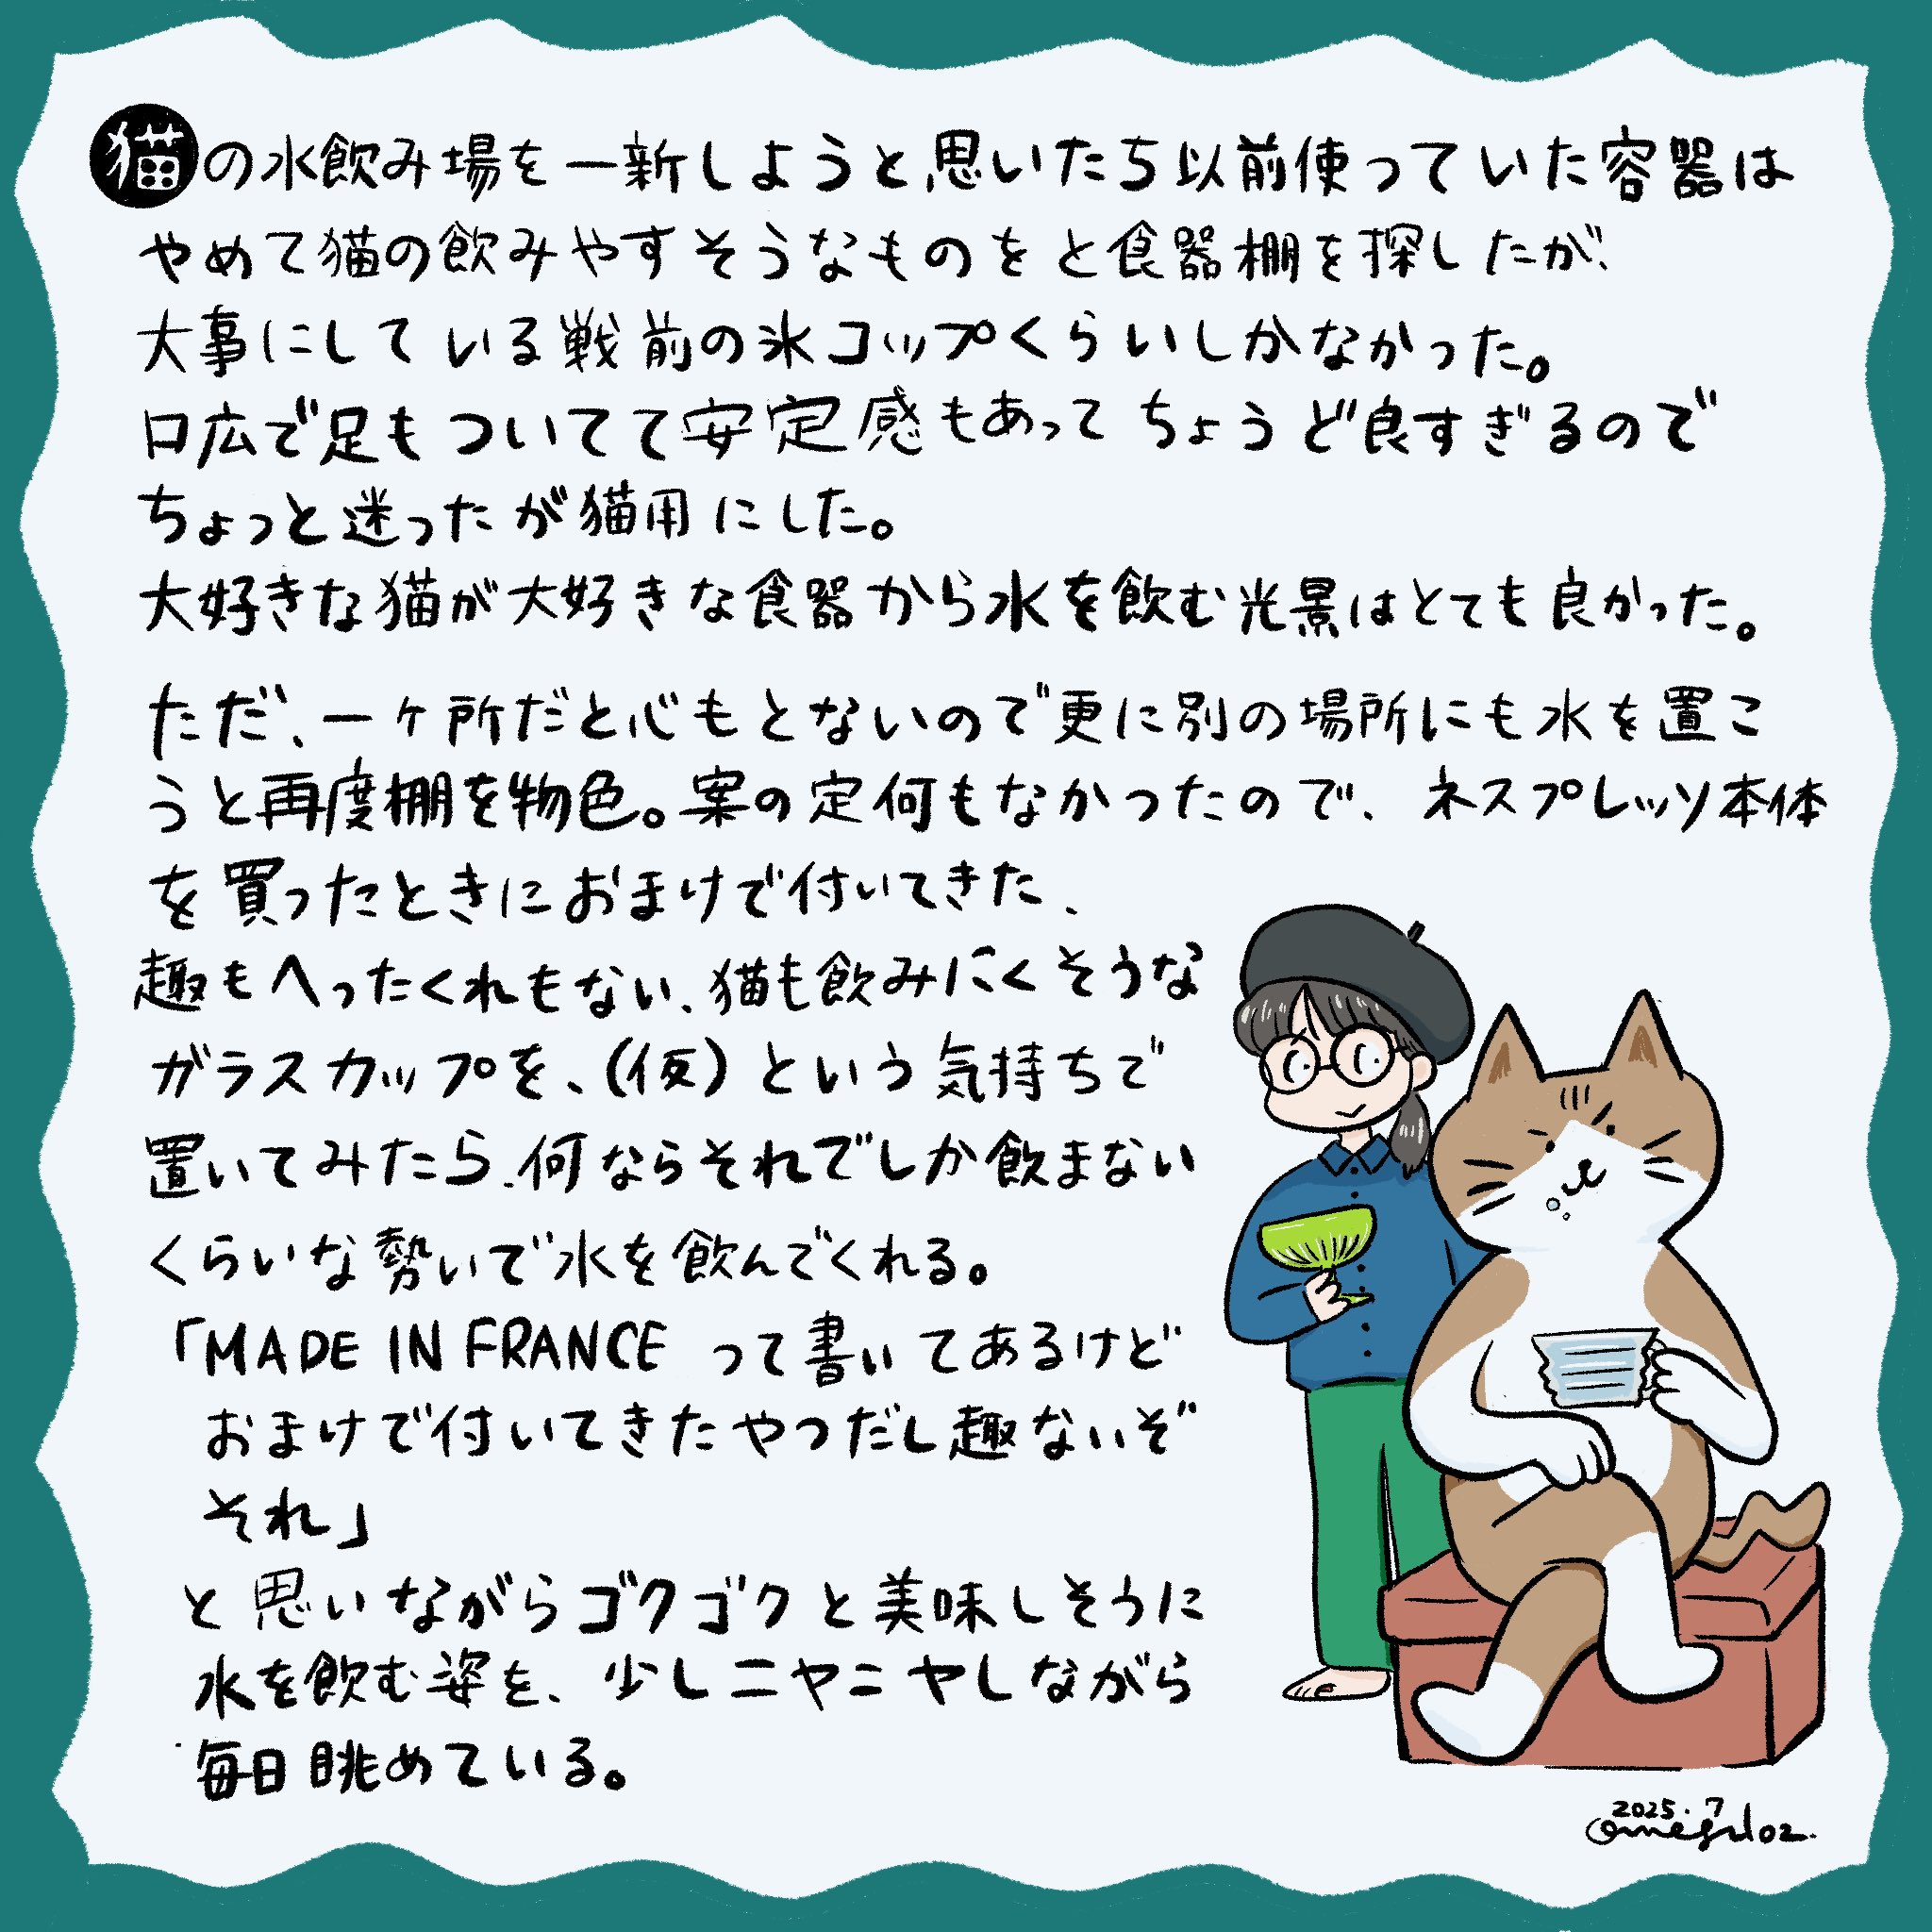 猫の水飲み場を一新しようと思いたち以前使っていた容器は
やめて猫の飲みやすそうなものをと食器棚を探したが、
大事にしている戦前の氷コップくらいしかなかった。
口広で足もついてて安定感もあってちょうど良すぎるので
ちょっと迷ったが猫用にした。
大好きな猫が大好きな食器から水を飲む光景はとても良かった。
ただ、一ヶ所だと心もとないので更に別の場所にも水を置こ
うと再度棚を物色。案の定何もなかったので、ネスプレッソ本体
を買ったときにおまけで付いてきた、
趣もへったくれもない、猫も飲みにくそうな
ガラスカップを、(仮)という気持ちで
置いてみたら、何ならそれでしか飲まない
くらいな勢いで水を飲んでくれる。
「MADE IN FRANCE って書いてあるけど
おまけで付いてきたやつだし趣ないぞ
それ」
と思いながらゴクゴクと美味しそうに
水を飲む姿を、少しニヤニヤしながら
毎日眺めている。
2025.7